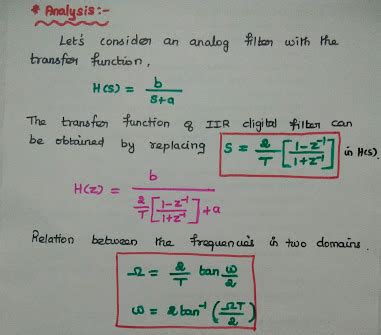 * Analysis:-
Let's consider an analog filter with the
transfer function,
H(s) = b / s+a
The transfer function of IIR digital filter can
be obtained by replacing S = 2/T [1-z⁻¹ / 1+z⁻¹] in H(s).
H(z) = b / 2/T [1-z⁻¹ / 1+z⁻¹] + a
Relation between the frequencies in two domains.
Ω = 2/T tan ω/2
ω = 2 tan⁻¹ (ΩT/2)